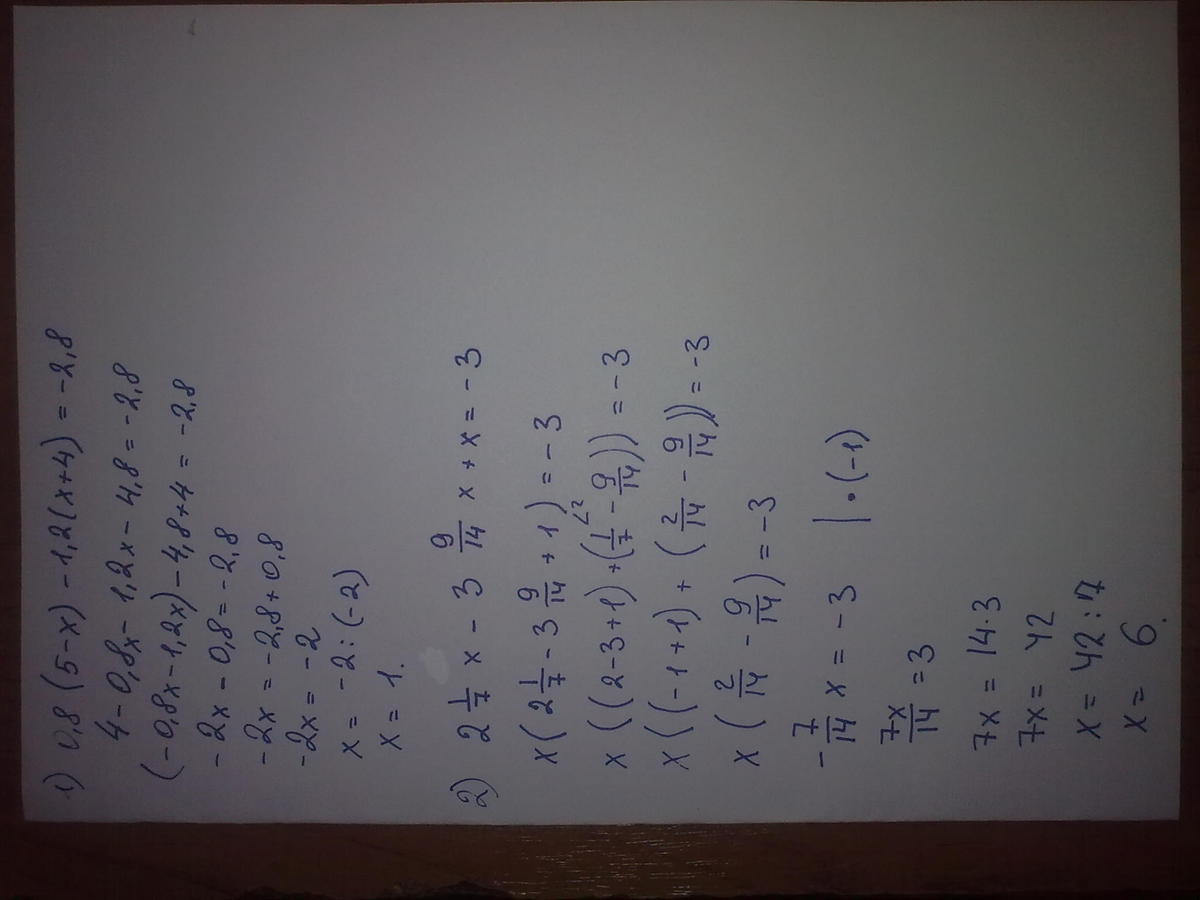 1) 0,8(5-x)-1,2(x+4)=-2,8
4-0,8x-1,2x-4,8=-2,8
(-0,8x-1,2x)-4,8+4=-2,8
-2x-0,8=-2,8
-2x=-2,8+0,8
-2x=-2
x=-2:(-2)
x=1.
2) 2 1/7 x - 3 9/14 x + x = -3
x(2 1/7 - 3 9/14 + 1) = -3
x((2-3+1)+(1/7 <2 - 9/14))) = -3
x((-1+1)+(2/14 - 9/14)) = -3
x(2/14 - 9/14) = -3
-7/14 x = -3 | •(-1)
7x/14 = 3
7x = 14·3
7x = 42
x = 42:7
x = 6.